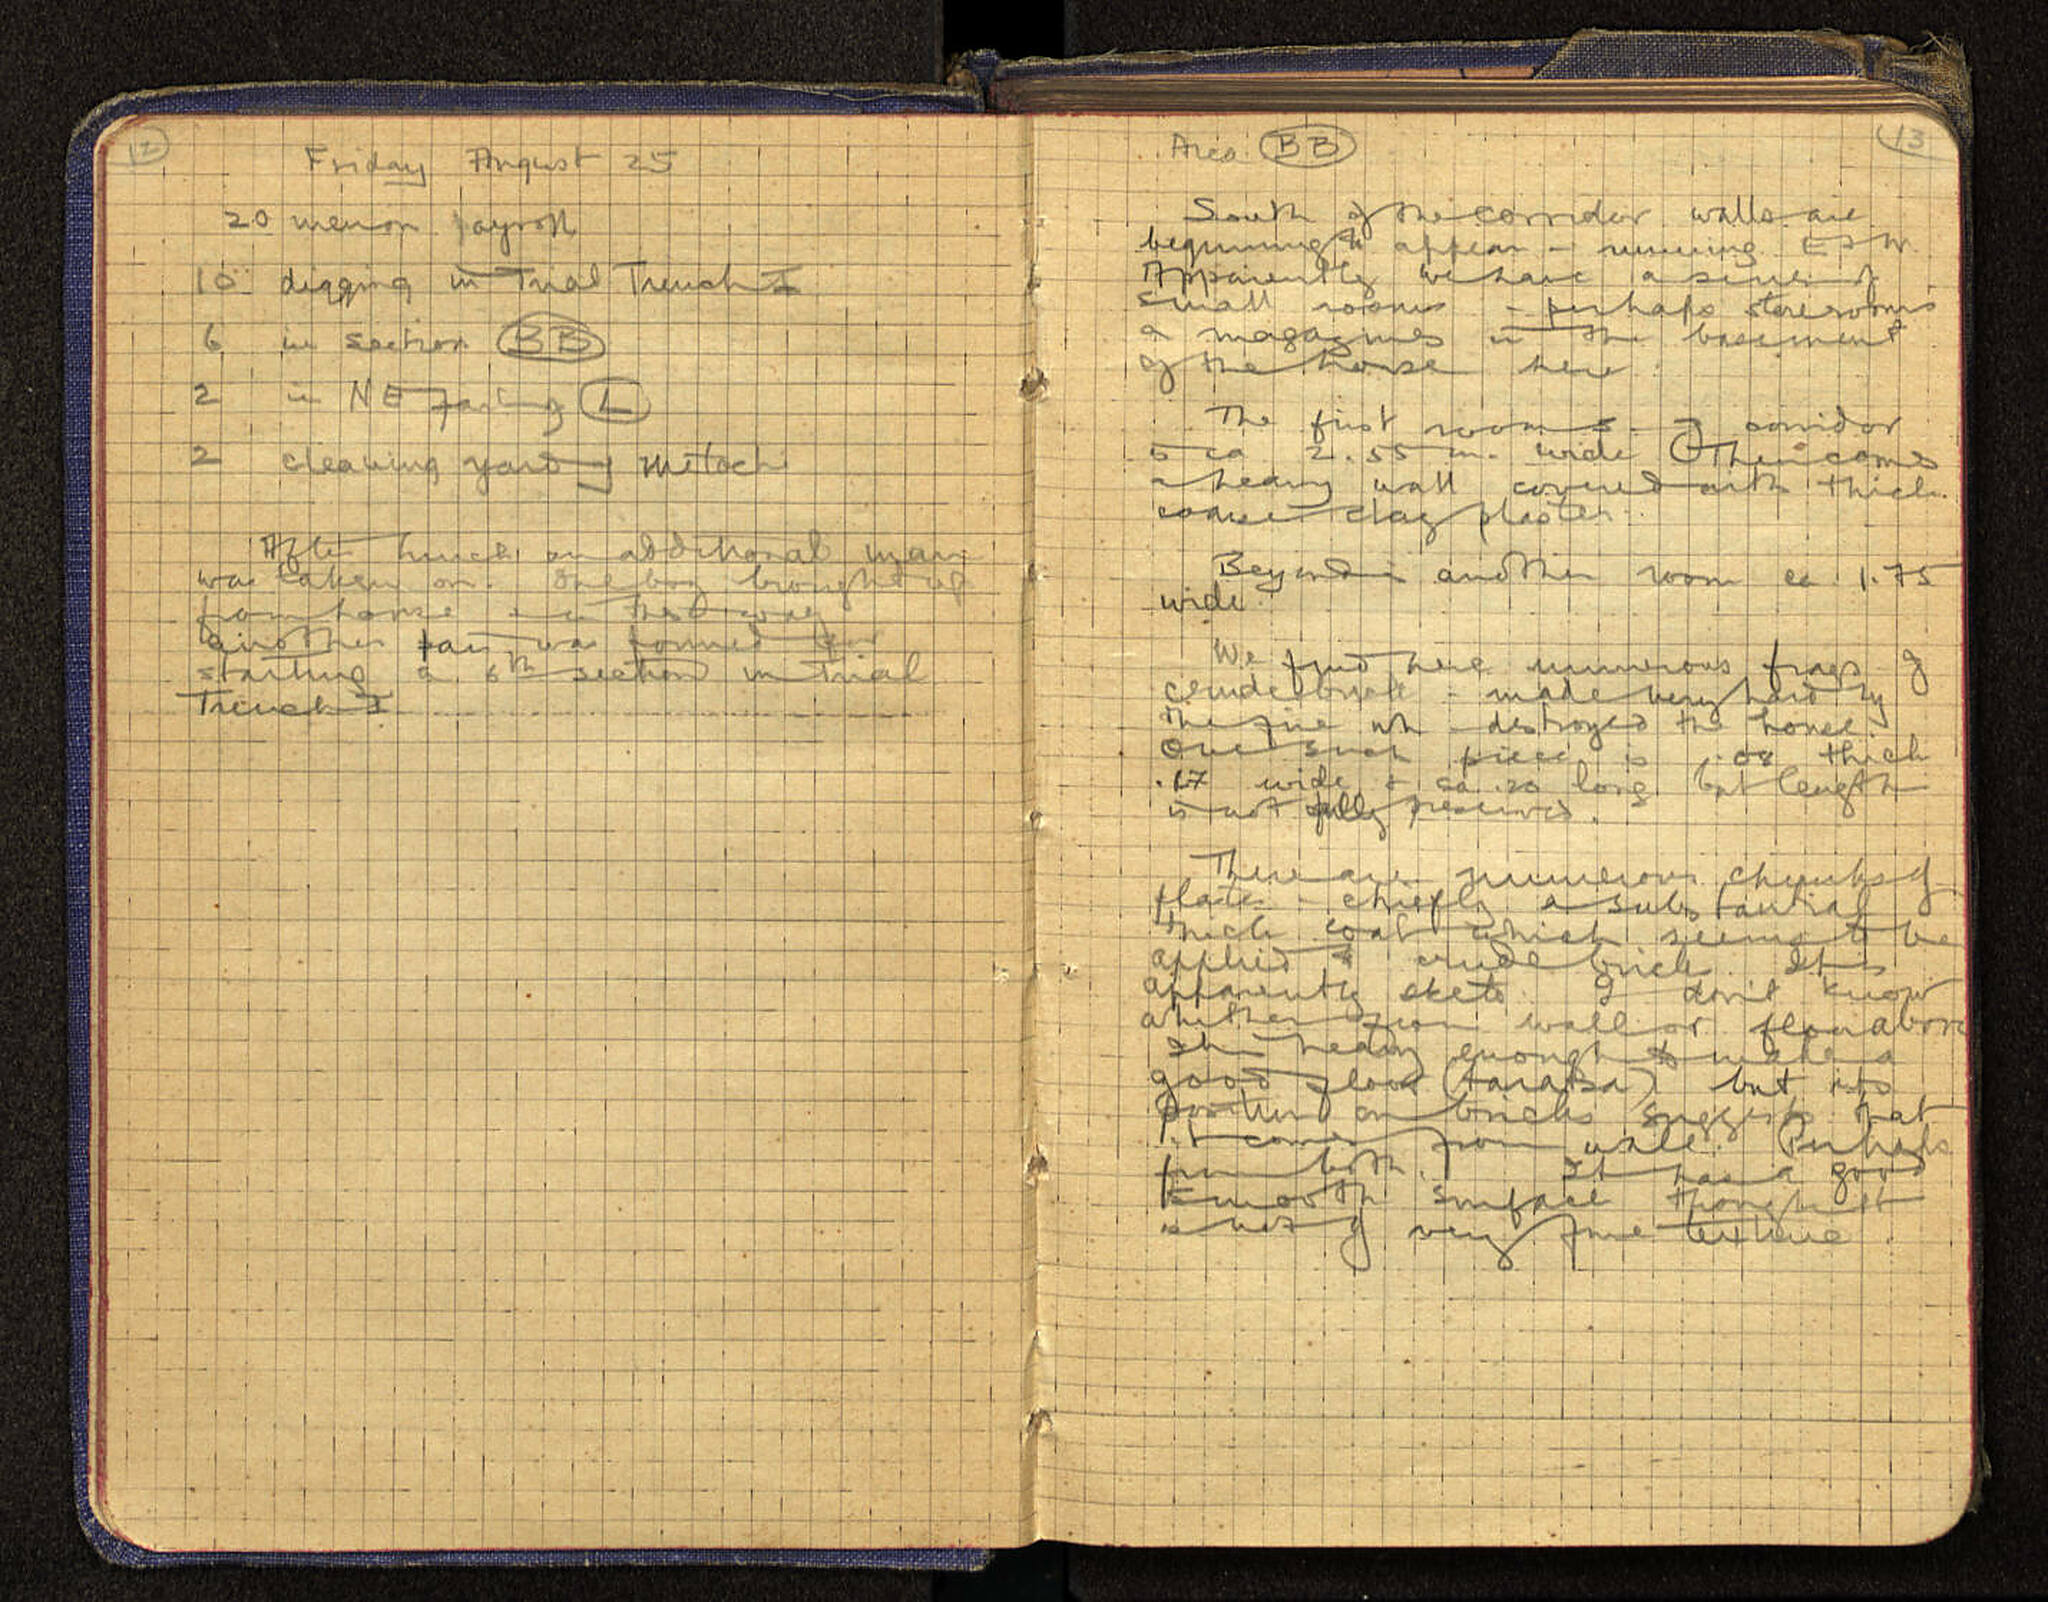 12
Friday August 25
20 men on payroll
10 digging in Trial Trench I
6 in section BB
2 in NE Facing L
2 cleaning yard of Metochi
After lunch an additional man
was taken on. One boy brought up
from house & in that way
another pair was formed for
starting a 6th section in Trial
Trench I
13
Area BB
South of the corridor walls are
beginning to appear - running E & W.
Apparently we have a series of
small rooms - perhaps storerooms
or magazines in the basement
of the house here
The first room - or corridor
is ca 2.55 m. wide. Then comes
a heavy wall covered with thick
coarse clay plaster.
Beyond is another room ca 1.75
wide.
We find here numerous frags of
crude brick - made very hard by
the fire wh destroyed the house.
One such piece is .08 thick
.17 wide & ca .20 long but length
is not fully preserved.
There are numerous chunks of
plaster - chiefly a substantial
thick coat which seems to be
applied to crude brick. It is
apparently I don't know
whether from wall or floor above
It is heavy enough to make a
good floor but its
position on bricks suggests that
it comes from wall. Perhaps
from both. It has a good
smooth surface though it
is not of very fine texture.